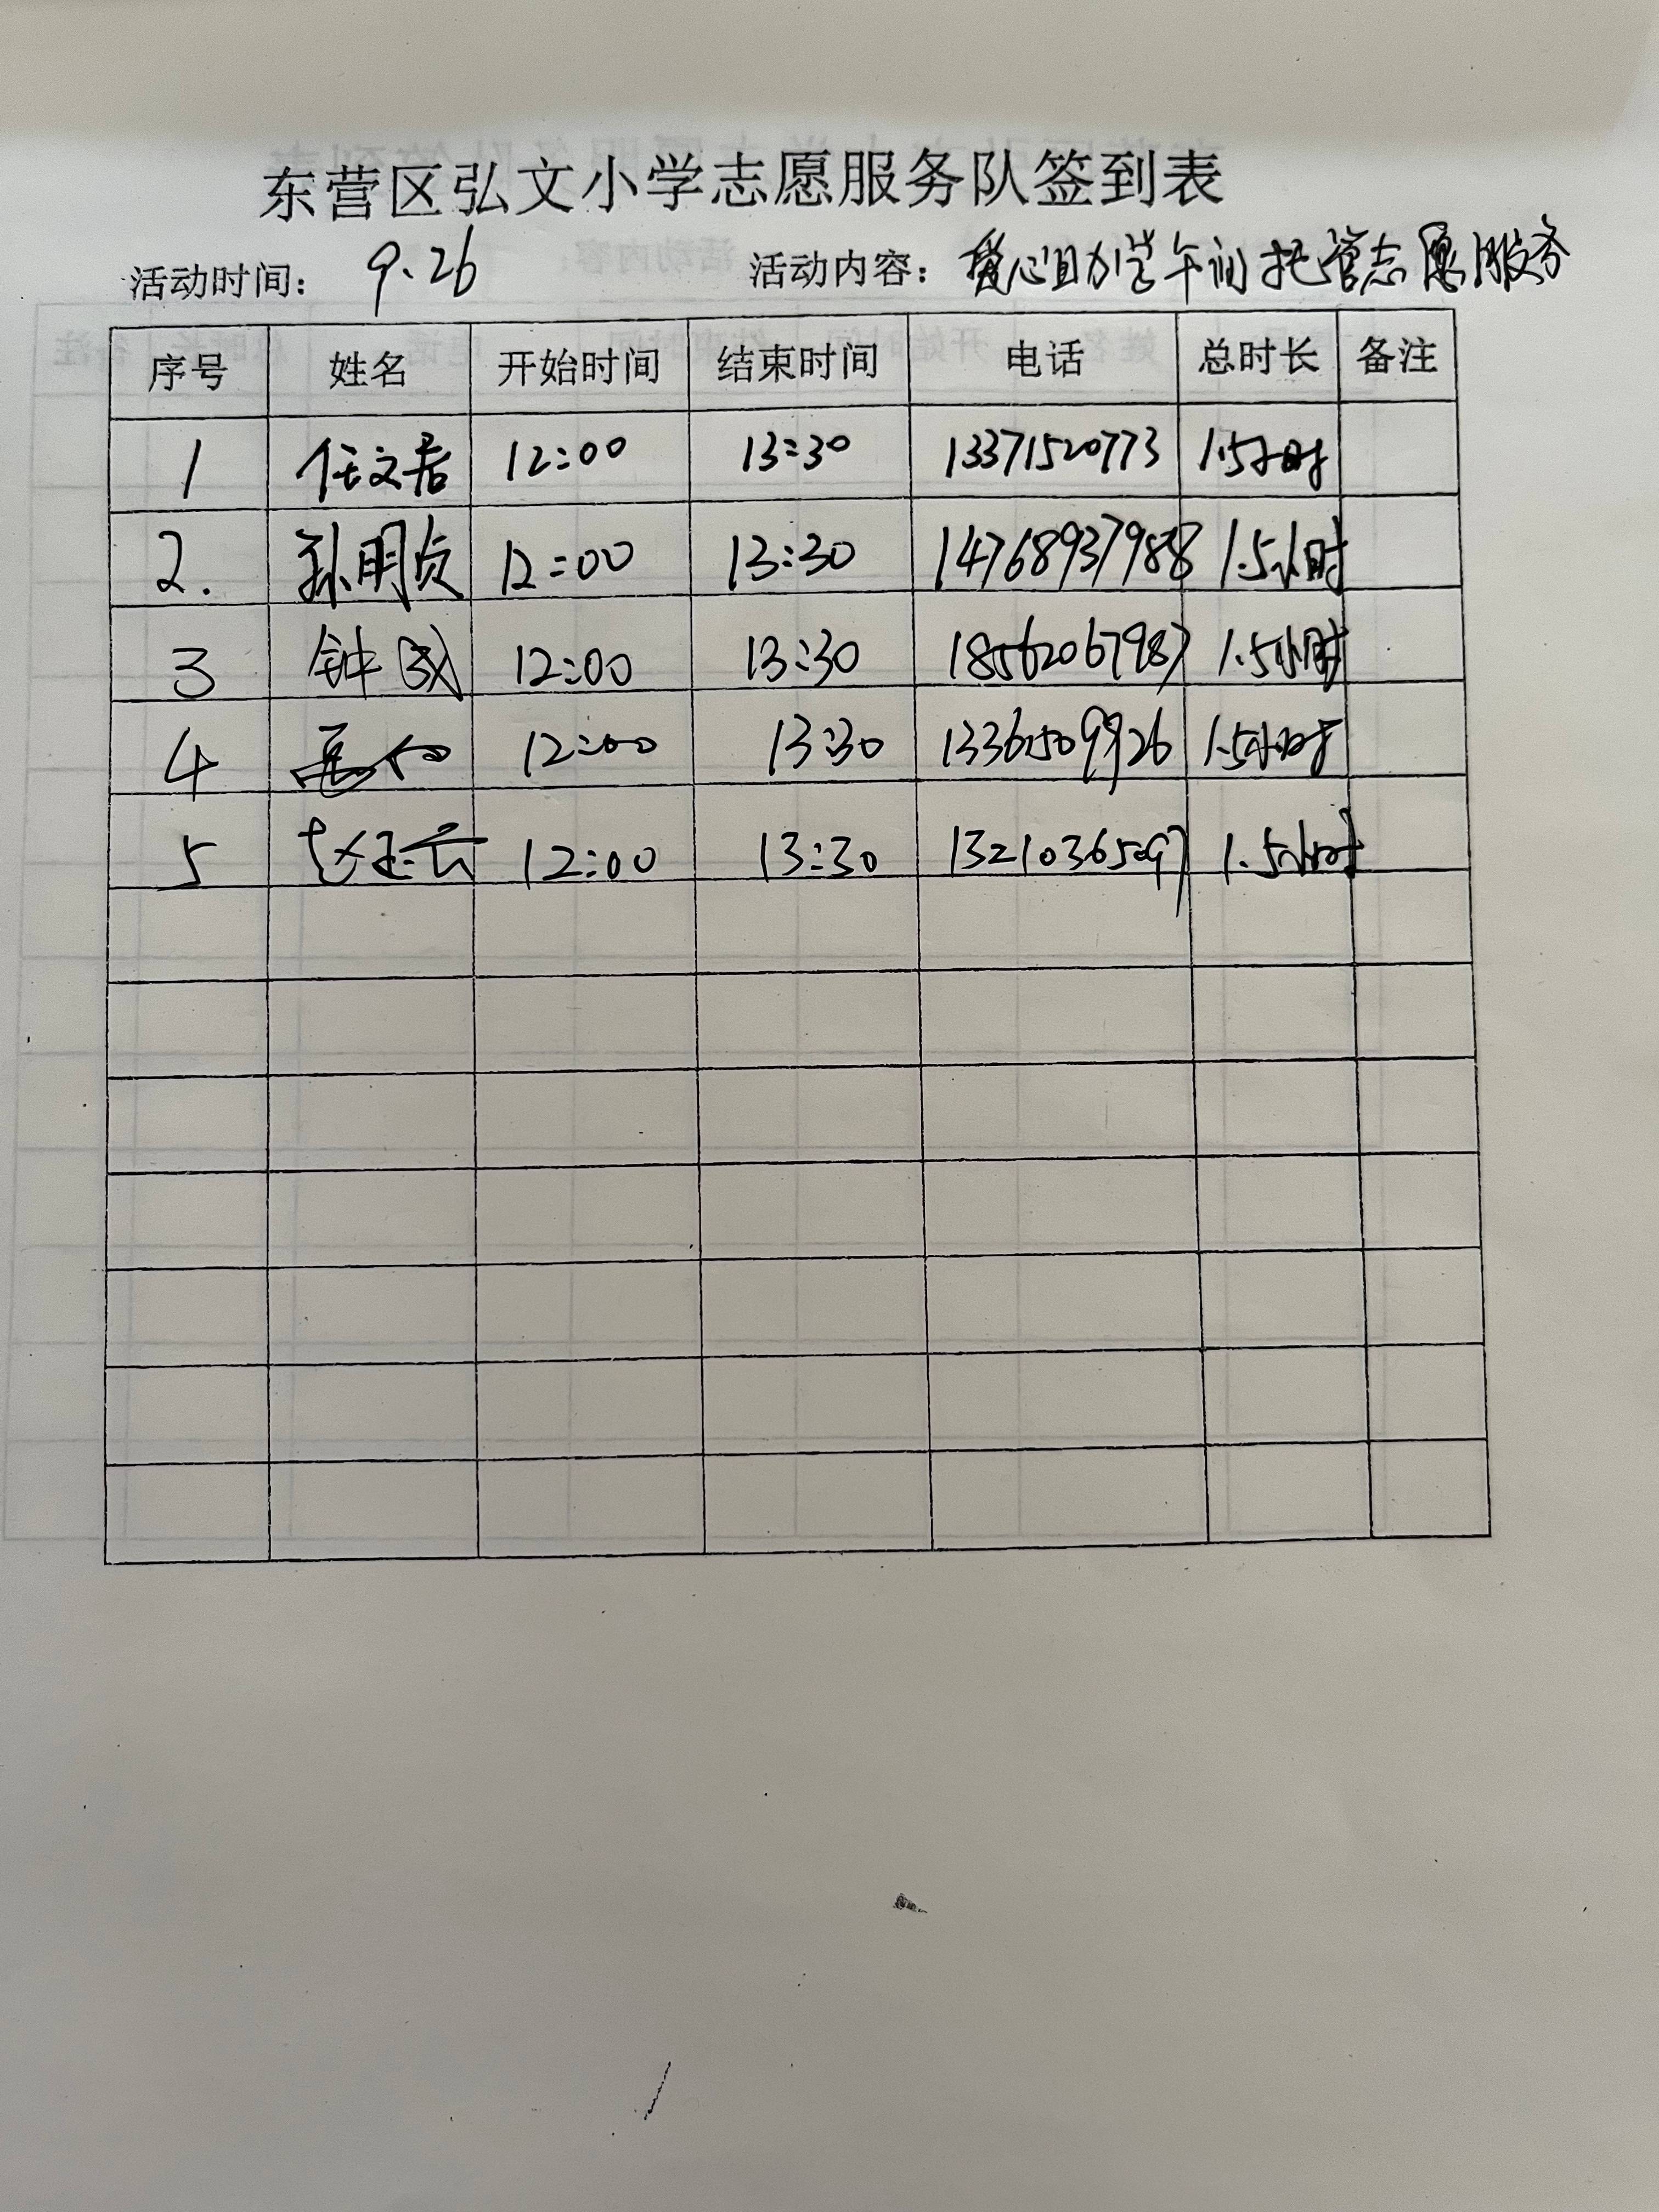 东营区弘文小学志愿服务队签到表
活动时间: 9.26 活动内容: 爱心助学午间托管志愿服务
序号 姓名 开始时间 结束时间 电话 总时长 备注
1 任文君 12:00 13:30 13371520773 1.5小时
2. 孙明贞 12:00 13:30 14768937988 1.5小时
3 钟 12:00 13:30 18562067987 1.5小时
4 12:00 13:30 13361509926 1.5小时
5 赵 12:00 13:30 13210365097 1.5小时